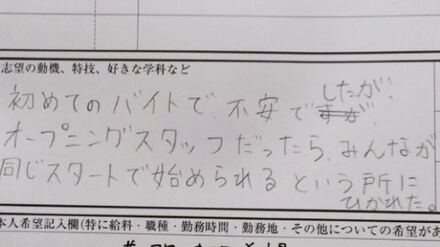 志望の動機、特技、好きな学科など
初めてのバイトで不安でしたが、
オープニングスタッフだったら、みんなが
同じスタートで始められるという所に
ひかれた。
本人希望記入欄(特に給料・職種・勤務時間・勤務地・その他についての希望があ